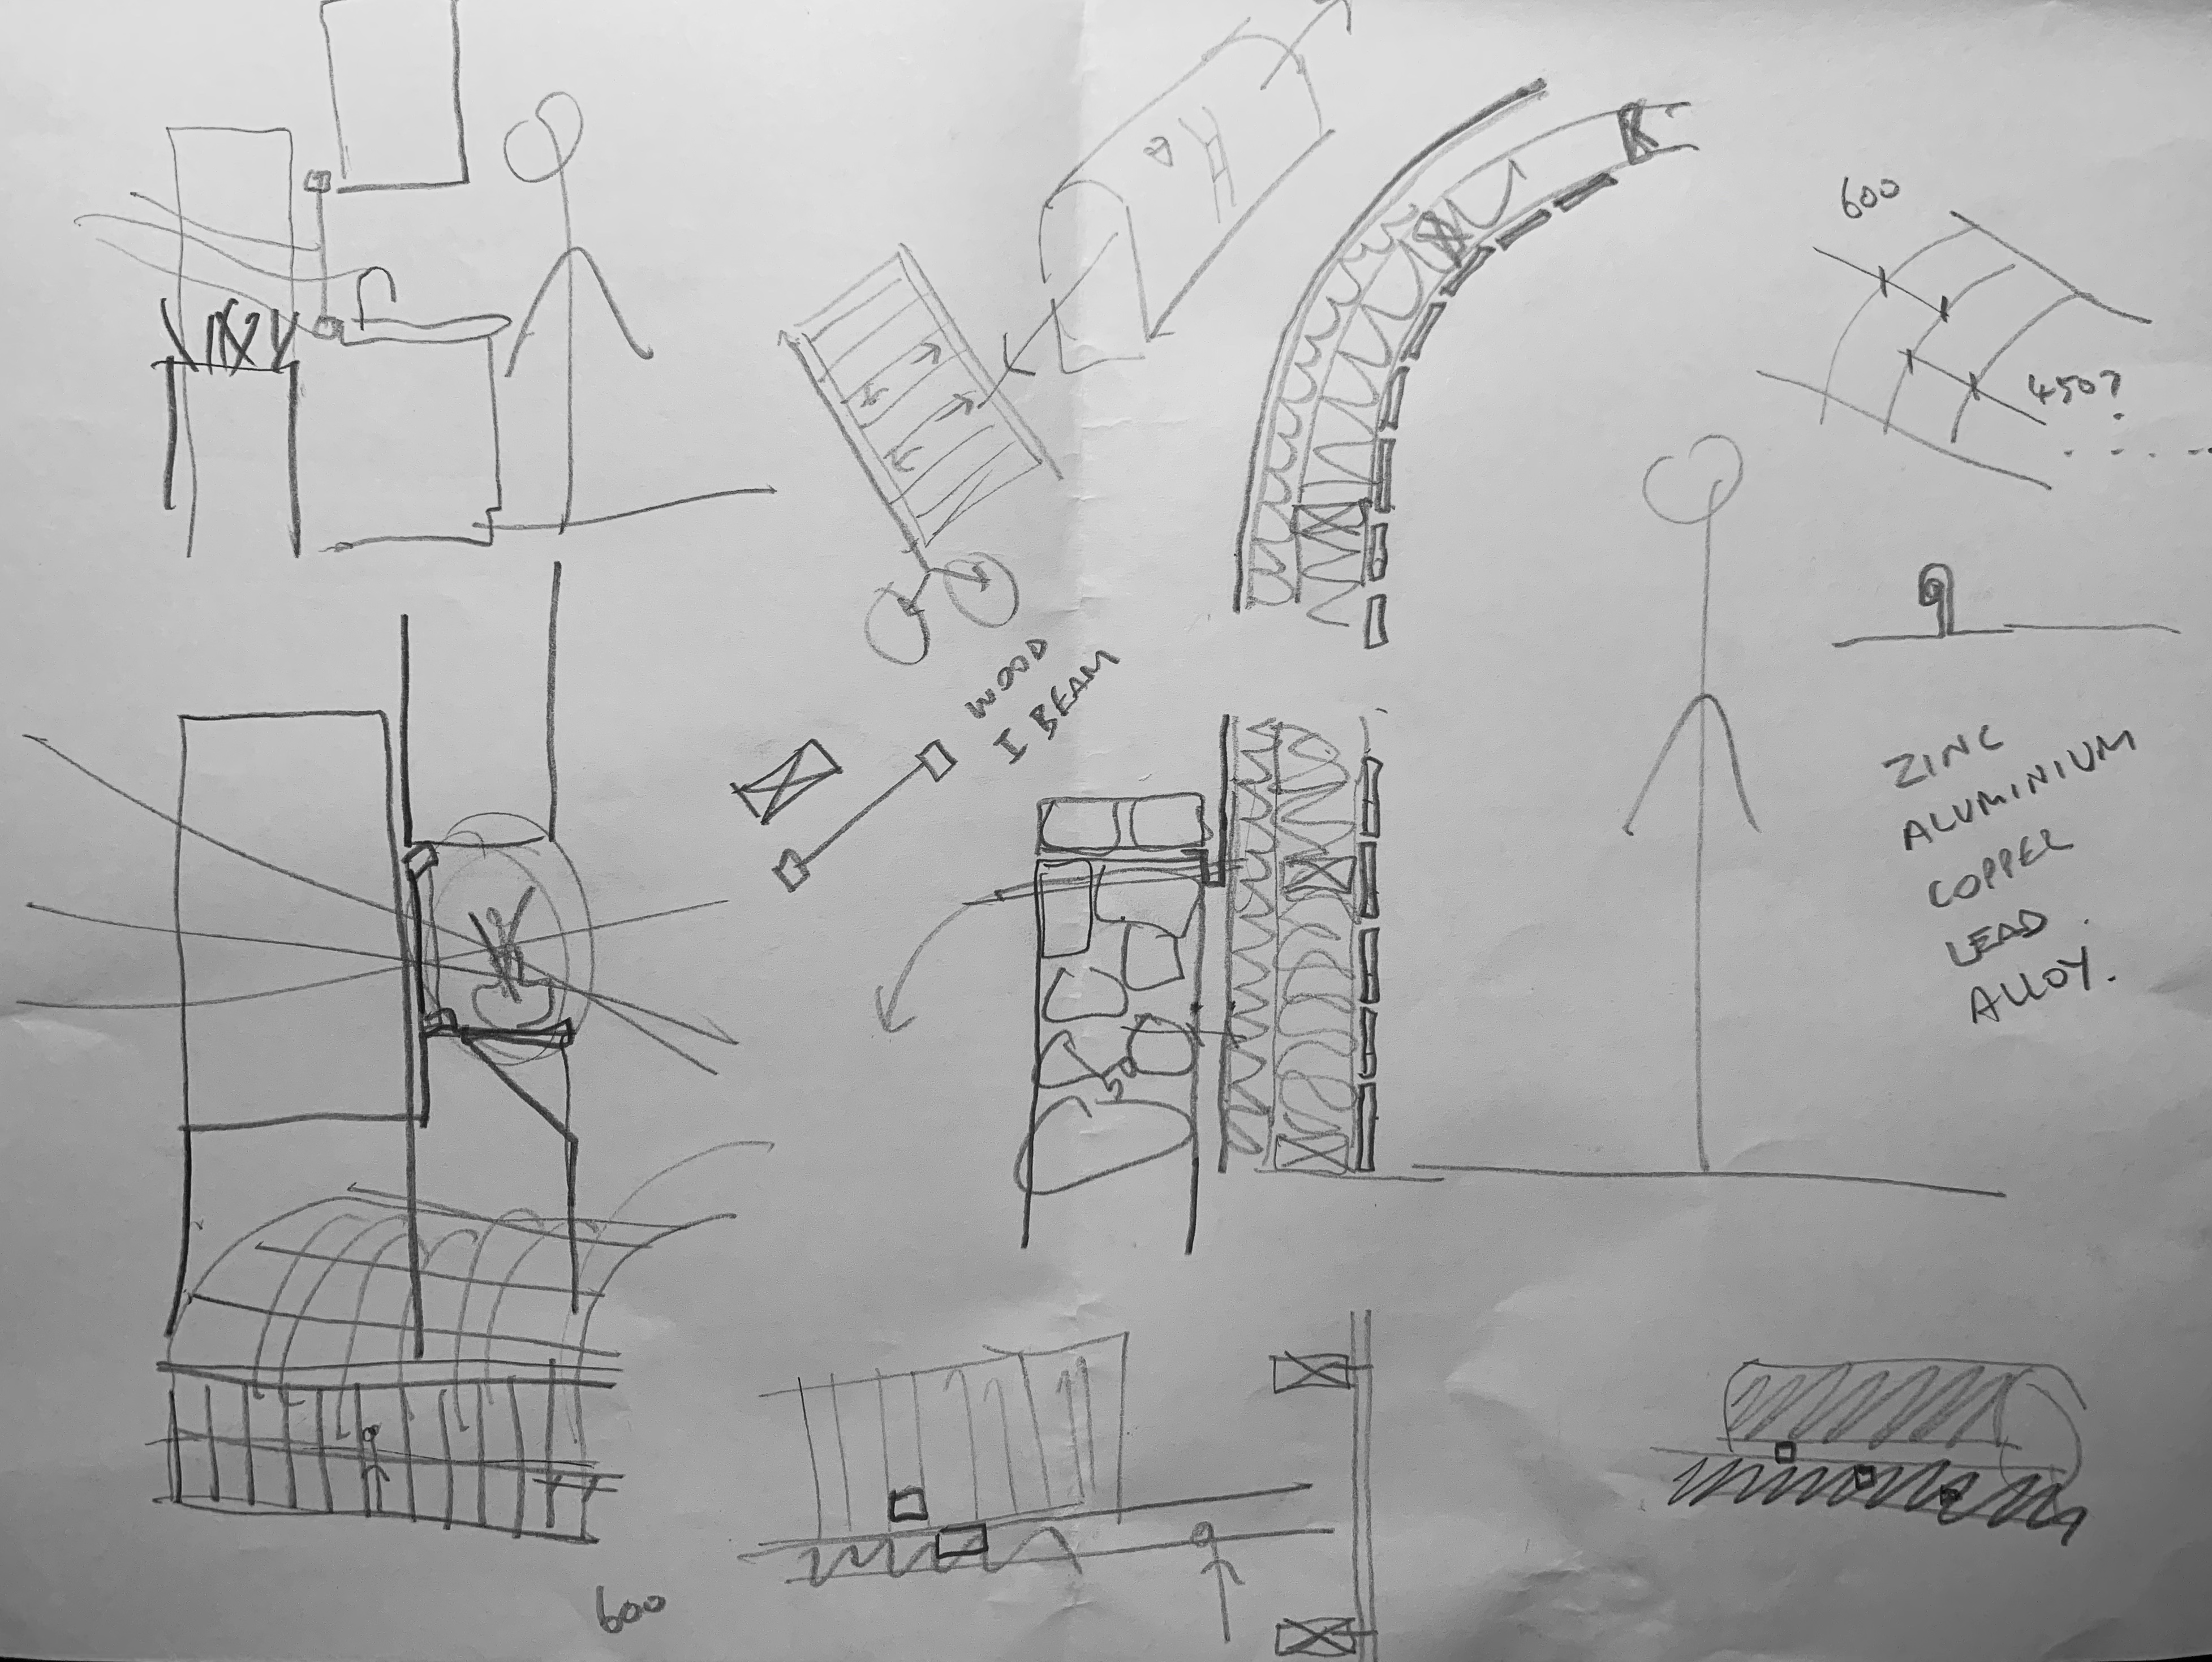 600
450?
WOOD
I BEAM
ZINC
ALUMINIUM
COPPER
LEAD
ALLOY.
50
600